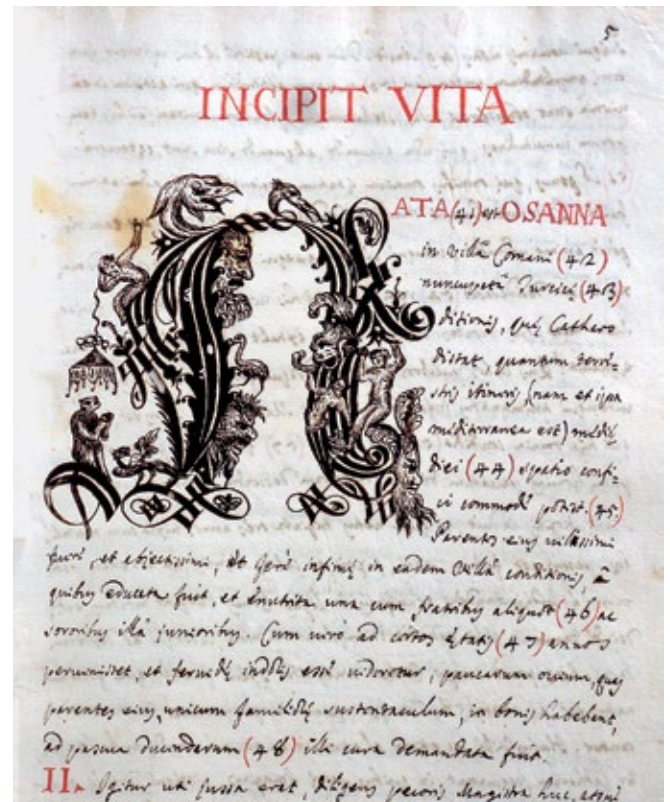 5
INCIPIT VITA
NATA (41) est OSANNA
in villâ Comani (42)
nuncupatâ Turcicę (43)
ditionis, quę Catharo
distat, quantum terre-
stris itineris (nam et ipsa
mediterranea est) medię
diei (44) spatio confi-
ci commodè potest. (45)
Parentes eius vilissimi
fuere, et abjectissimi, et ferè infimę in eadem villâ conditionis, à
quibus educata fuit, et enutrita una cum fratribus aliquot (46) ac
sororibus illâ junioribus. Cum vero ad certos ętatis (47) annos
pervenisset, et fervidę indolis esse videretur, paucarum ovium, quas
parentes eius, unicum familię sustentaculum, in bonis habebant,
ad pascua ducendarum (48) illi cura demandata fuit.
II. Igitur uti jussa erat, diligens pecoris Magistra huc, atque